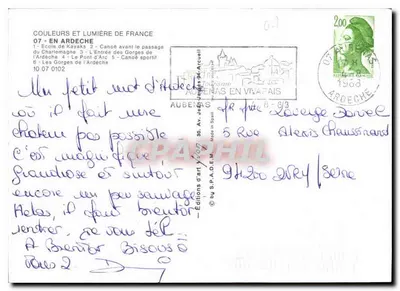 COULEURS ET LUMIÈRE DE FRANCE
07 - EN ARDECHE
1 - Ecole de Kayaks 3 - Canoë avant le passage
du Charlemagne 3 - L'Entrée des Gorges de
l'Ardèche 4 - Le Pont d'Arc 5 - Canoë sportif
6 - Les Gorges de l'Ardèche
10.07.0102
Un petit mot d'Ardèche
où il fait une
chaleur pas possible
C'est magnifique
grandiose et surtout
encore un peu sauvage
Hélas, il faut bientôt
rentrer, je vous tél...
A Bientôt Bisous à
vous 2
Editions d'art
© by S.P.A.D.E.M.
EN VIVARAIS
AUBENAS
2,00
1988
ARDECHE
5 Rue Alexis Chaussinard
94200 IVRY / Seine
CPAPHIL